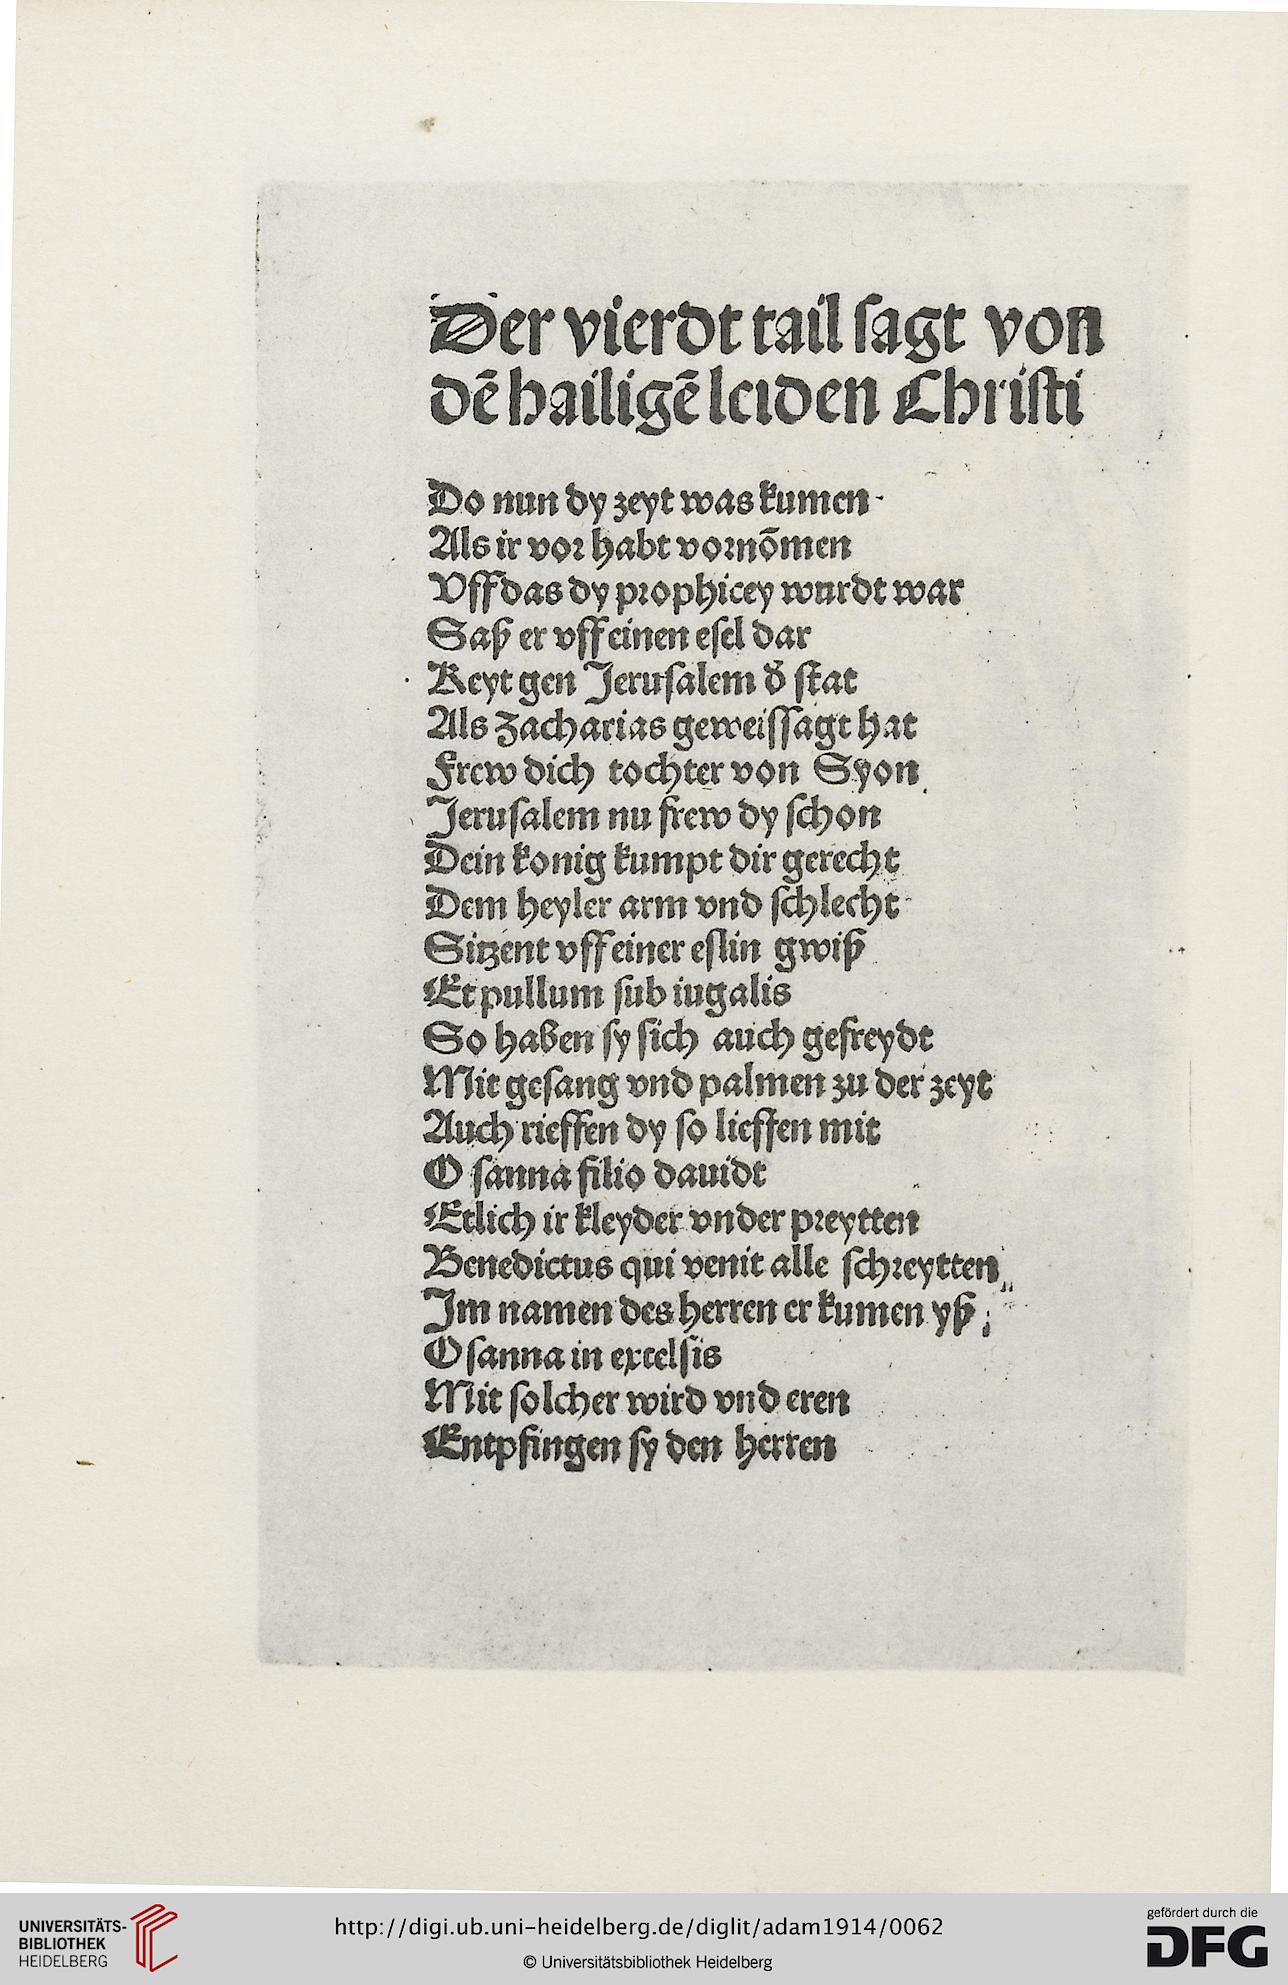 Der vierdt tail sagt von
dē hailigē leiden Christi
Do nun dy zeyt was kumen
Als ir vor habt vornōmen
Vff das dy prophicey wurdt war
Saß er vff einen esel dar
Reyt gen Jerusalem d̄ stat
Als Zacharias geweissagt hat
Frew dich tochter von Syon
Jerusalem nu frew dy schon
Dein konig kumpt dir gerecht
Dem heyler arm vnd schlecht
Sitzent vff einer eslin gwiß
Et pullum sub iugalis
So haben sy sich auch gefreydt
Mit gesang vnd palmen zu der zeyt
Auch rieffen dy so lieffen mit
O sanna filio dauidt
Etlich ir kleyder vnder preytten
Benedictus qui venit alle schreytten
Im namen des herren er kumen yß
O sanna in excelsis
Mit solcher wird vnd eren
Entpfingen sy den herren
UNIVERSITÄTS-
BIBLIOTHEK
HEIDELBERG
http://digi.ub.uni-heidelberg.de/diglit/adam1914/0062
© Universitätsbibliothek Heidelberg
gefördert durch die
DFG